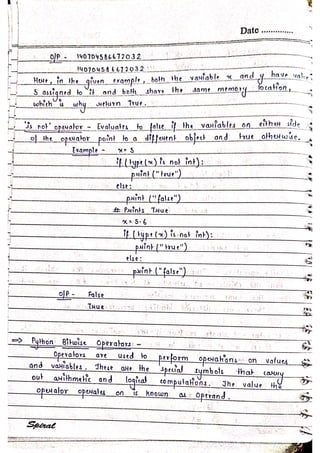 Date ............
O/P - 140704586677032
140704586677032
Here, in the given example, both the variable x and y have value
5 assigned to it and both share the same memory location,
which is why return True.
'is not' operator - Evaluates to false if the variables on either side
of the operator point to a different object and true otherwise.
Example - x = 5
if (type(x) is not int):
print ("true")
else:
print ("false")
# Prints True
x = 5.6
if (type(x) is not int):
print ("true")
else:
print ("false")
O/P - False
True
⇒ Python Bitwise Operators :-
Operators are used to perform operations on values
and variables. These are the special symbols that carry
out arithmetic and logical computations. The value the
operator operates on is known as Operand.
Spiral